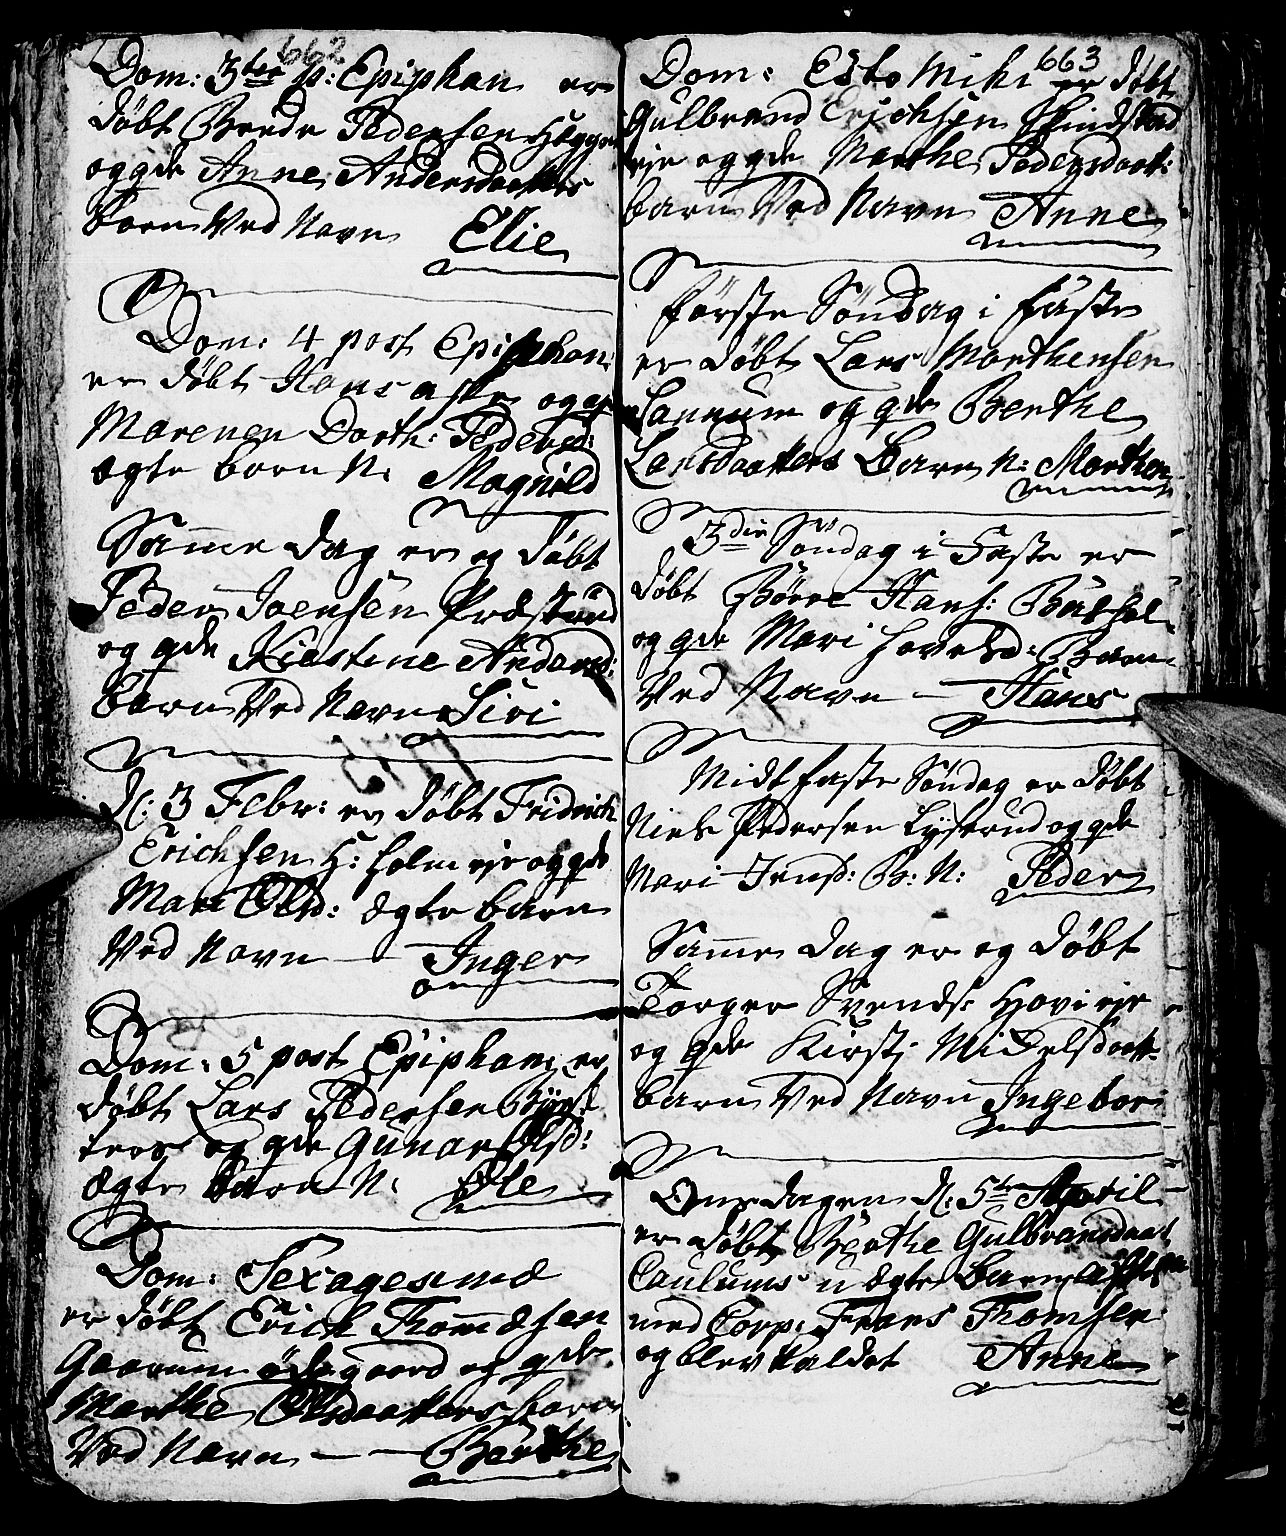 662
Dom: 3tie p: Epiphan er
døbt Berdu Pedersen Hegge
og qde Anne Andersdaatters
barn Ved Navn Elie
Dom: 4 post Epiphan:
er døbt Hans og
Marenen Dorth: Pedersd:
ægte barn N: Magnild
Samme dag er og døbt
Peder Joensen Præstrud
og qde Kiestine Andersd:
barn Ved Navn Siri
d: 3 Febr: er døbt Fridrich
Erichsen H: holm eje og qde
Mari Olsd: ægte barn
Ved Navn — Inger
Dom: 5 post Epiphan: er
døbt Lars Pedersen
og qde Gunar Olsd:
ægte barn N: Ole
Dom: Sexagesimæ
er døbt Erich Thommæsen
Gaarum ødegaard og qde
Marthe Olsdaatters barn
Ved Navn — — Berthe
663
Dom: Esto Mihi er døbt
Gulbrand Erichsen Skindstad
eje og qde Marthe Pedersdaatt:
barn Ved Navn Anne
Første Søndag i faste
er døbt Lars Morthensen
Lannum og qde Berthe
Larsdaatters Barn N: Morthen
3die Søndag i Faste er
døbt Børre Hans:
og qde Mari Hovelsd: Barn
Ved Navn — Hans
Midtfaste Søndag er døbt
Niels Pedersen Lyserud og qde
Mari Jensd: B: N: Peder
Samme dag er og døbt
Torger Svends: Hjovi eje
og qde Kirsti Mickelsdaatt:
barn Ved Navn Ingebor
Onsdagen d: 5te April
er døbt Berthe Gulbransdaat
Caulums uægte barn
med Corp: Frans Thomsen
og blev kaldet Anne